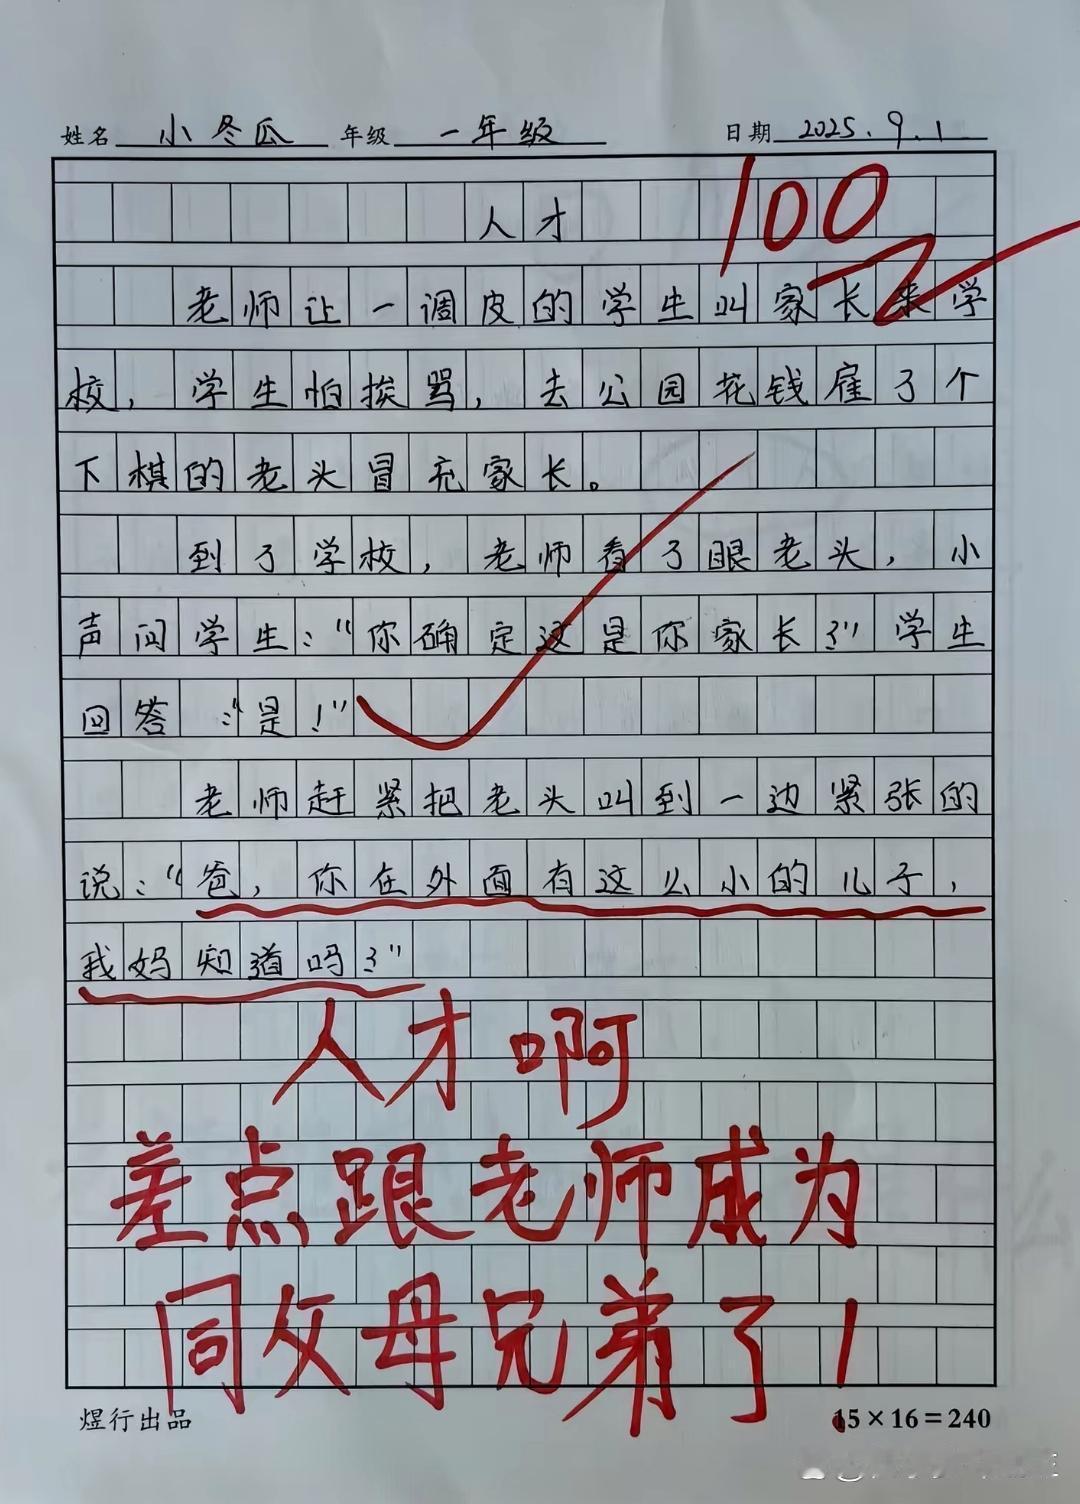 姓名 小冬瓜 年级 一年级 日期 2025.9.1
100
人才
老师让一调皮的学生叫家长来学
校，学生怕挨骂，去公园花钱雇了个
下棋的老头冒充家长。
到了学校，老师看了眼老头，小
声问学生：“你确定这是你家长？”学生
回答：“是！”
老师赶紧把老头叫到一边紧张的
说：“爸，你在外面有这么小的儿子，
我妈知道吗？”
人才啊
差点跟老师成为
同父母兄弟了！
煜行出品 15×16=240